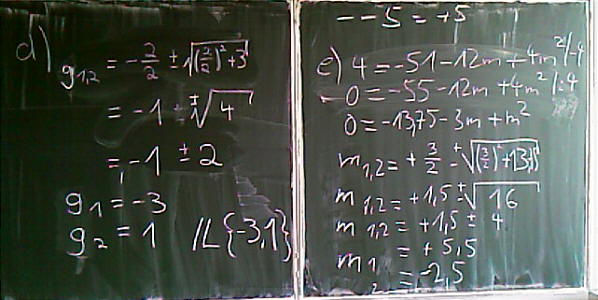 d)
g1,2 = -2/2 ± √((2/2)² + 3)
= -1 ± √4
= -1 ± 2
g1 = -3
g2 = 1 L{-3,1}
--5 = +5
e) 4 = -51 - 12m + 4m² |-4
0 = -55 - 12m + 4m² |:4
0 = -13,75 - 3m + m²
m1,2 = + 3/2 ± √((3/2)² + 13,75)
m1,2 = +1,5 ± √16
m1,2 = +1,5 ± 4
m1 = +5,5
2 = -2,5